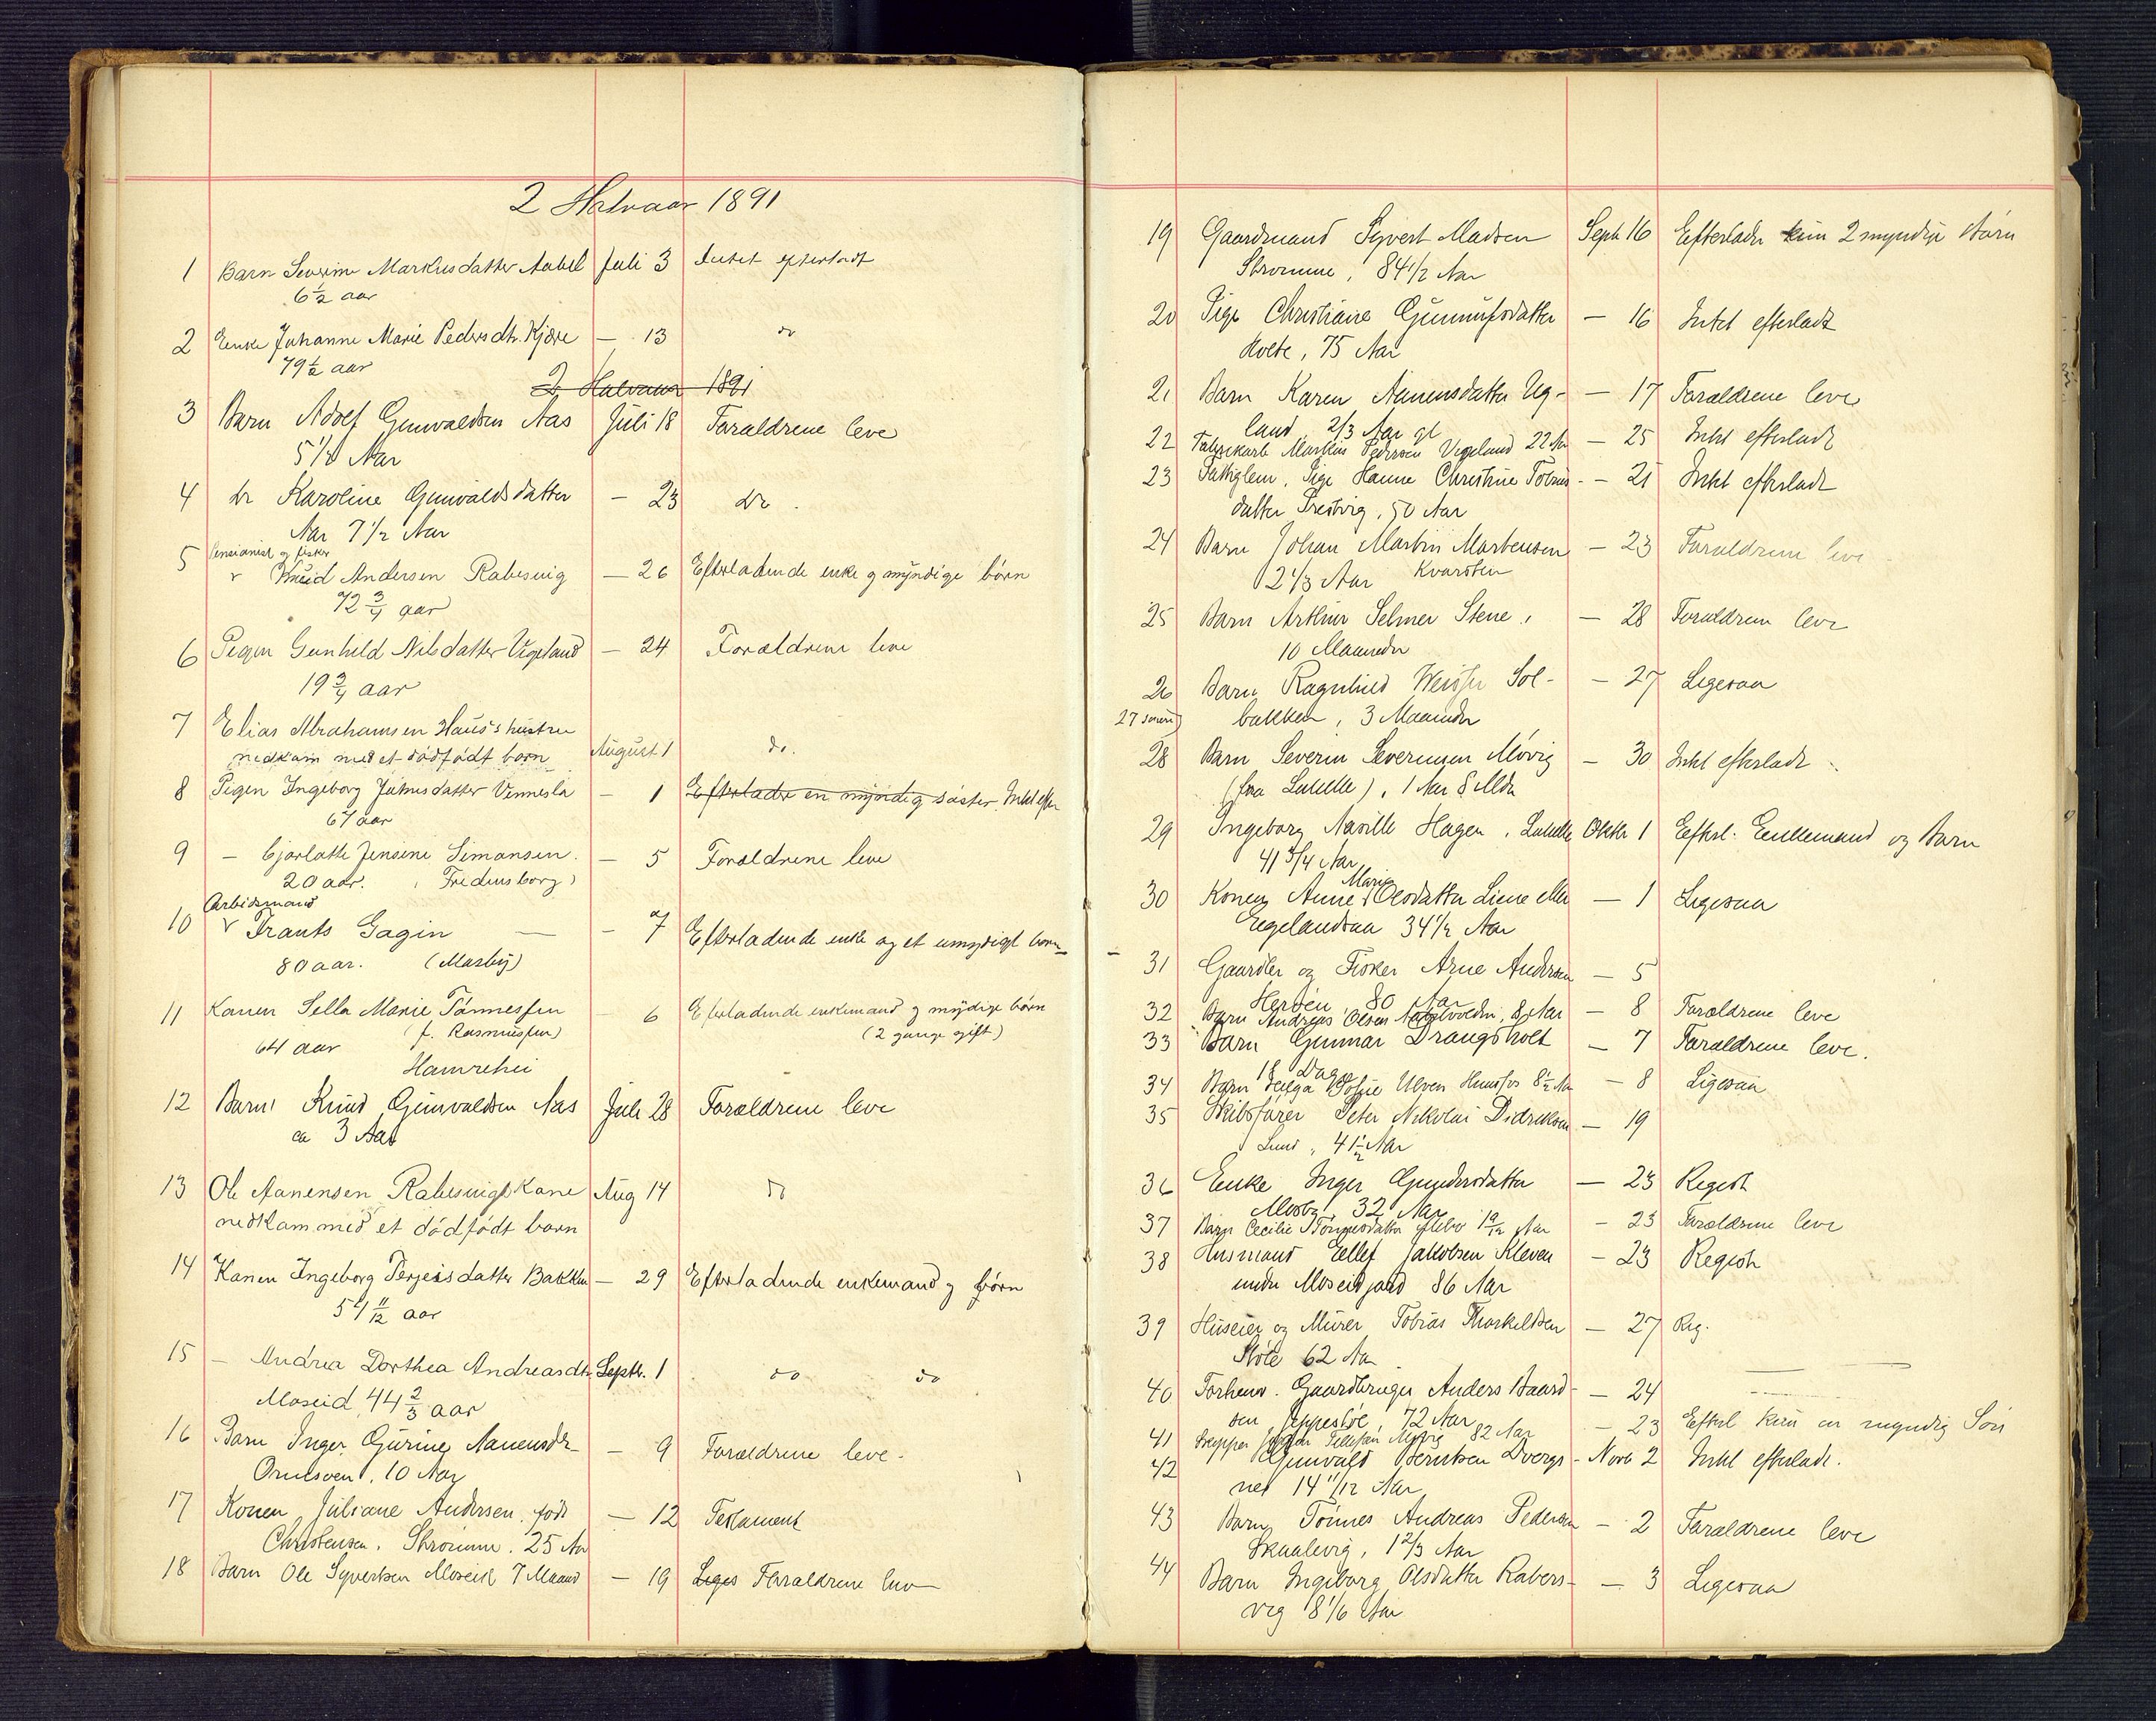 2 Halvaar 1891
1 Barn Severine Markusdatter Aabel Juli 3 Intet efterladt
6 1/2 aar
2 Enke Johanne Marie Pedersdtr. Kjære — 13 do
79 1/2 aar
2 Halvaar 1891
3 Barn Adolf Gunvaldsen Aas Juli 18 Forældrene leve
5 1/2 Aar
4 do Karoline Gunvaldsdatter — 23 do.
Aas 7 1/2 Aar
Pensionist og fisker
5 Knud Andersen Rabesvig — 26 Efterladende enke og myndige börn
72 3/4 aar
6 Pigen Gunhild Nilsdatter Vigeland — 24 Forældrene leve
19 3/4 aar
7 Elias Abrahamsen Haus's hustru
nedkom med et dödfödt barn August 1 do.
8 Pigen Ingeborg Johnsdatter Vennesla — 1 Efterlader en myndig söster. Intet efter
67 aar
9 — Jensine Simonsen. — 5 Forældrene leve
20 aar. (Fredensborg)
Arbeidsmand
10 Frants Gagin — — 7 Efterladende enke og et umyndigt barn
80 aar. (Mosby)
11 Konen Sella Marie Tönnessen — 6 Efterladende enkemand og myndige börn
(f. Rasmussen) (2 gange gift)
64 aar
Hamrehei
12 Barn Knud Gunvaldsen Aas Juli 28 Forældrene leve
ca 3 Aar
13 Ole Aanensen Rabesvigs Kone Aug 14 do
nedkom med et dödfödt barn
14 Konen Ingeborg Terjeisdatter Bakken — 29 Efterladende enkemand og börn
54 11/12 aar
15 — Andrea Dorthea Andreasdtr. Septr. 1 do do
Moseid 44 2/3 aar
16 Barn Inger Gurine Aanensdr — 9 Forældrene leve.
10 Aar
17 Konen Juliane Andersen, född — 12 Testament
Christensen. Strömme. 25 Aar
18 Barn Ole Syvertsen Moseid 7 Maand — 19 Liges Forældrene leve
19 Gaardmand Syvert Madsen Sept 16 Efterlader kun 2 myndige Börn
Strömme, 84 1/2 Aar
20 Pige Christiane Gunnufsdatter — 16 Intet efterladt
Holte, 75 Aar
21 Barn Karen Aanensdatter Ug- — 17 Forældrene leve
land, 2/3 Aar gl
22 Fabrikarb Markus Pedersen Vigeland 22 Aar — 25 Intet efterladt
23 Fattiglem, Pige Hanne Christine Tobias- — 21 Intet efterladt
datter Trestvig, 50 Aar
24 Barn Johan Martin Mortensen — 23 Forældrene leve
2 1/3 Aar Kvarsten
25 Barn Arthur Selmer Stene, — 28 Forældrene leve
10 Maaneder
26 Barn Ragnhild Sol- — 27 Ligesaa
bakken, 3 Maaneder
27
28 Barn Severin Severinsen Mövig — 30 Intet efterladt
(fra), 1 Aar 8 Mdr
29 Ingeborg Hagen, Oktbr 1 Efterl. Enkemand og Barn
41 3/4 Aar
30 Konen Anne Marie Olsdatter Liene eller — 1 Ligesaa
Egelandsaa 34 1/2 Aar
31 Gaardbr og Fisker Arne Andersen — 5
Herøen, 80 Aar
32 Barn Andreas Olsen, 8 Aar — 8 Forældrene leve
33 Barn Gunnar Drangsholt — 7 Forældrene leve.
18 Dage
34 Barn Helga Sofie Ulven Hunsfos 8 1/2 Aar — 8 Ligesaa
35 Skibsfører Peter Nikolai Didriksen — 19
Lund, 41 1/2 Aar
36 Enke Inger Gundersdatter — 23 Registr
Mosby, 32 Aar
37 Barn Cecilie Tönnesdatter 1 9/12 Aar — 23 Forældrene leve
38 Husmand Ellef Jakobsen Kleven — 23 Registr
under Moseidjord 86 Aar
39 Huseier og Murer Tobias Thorkildsen — 27 Reg.
Stöle 62 Aar
40 Forhenv. Gaardbruger Anders Baard- — 24
sen Jeppestöe, 72 Aar
41 Skipper Mövig 82 Aar — 23 Efterl kun en myndig Sön
42 Gunvald Berntsen Dvergs- — Novb 2 Intet efterladt.
nes 14 11/12 Aar
43 Barn Tönnes Andreas Pedersen — 2 Forældrene leve
Skaalevig, 1 2/3 Aar
44 Barn Ingeborg Olsdatter Rabers- — 3 Ligesaa
vig 8 1/6 Aar